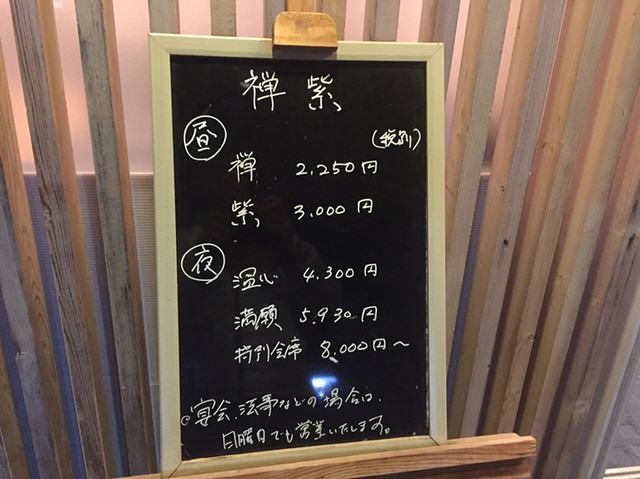 禅紫
(税別)
昼
禅 2.250円
紫 3.000円
夜
温心 4.300円
満願 5.930円
特別会席 8.000円〜
◎宴会.法事などの場合は.
日曜日でも営業いたします。